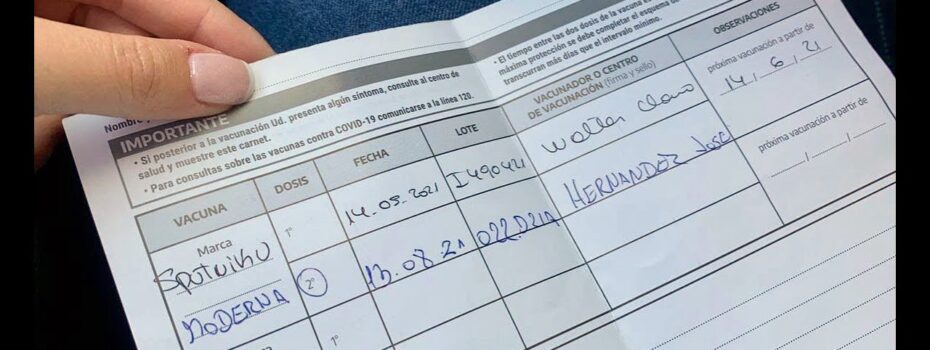 Nombre
IMPORTANTE
• Si posterior a la vacunación Ud. presenta algún síntoma, consulte al centro de
salud y muestre este carnet.
• Para consultas sobre las vacunas contra COVID-19 comunicarse a la línea 120.
• El tiempo entre las dos dosis de la vacuna
máxima protección se debe completar el esquema de
transcurran más días que el intervalo mínimo.
VACUNA DOSIS FECHA LOTE VACUNADOR O CENTRO DE VACUNACIÓN (firma y sello) OBSERVACIONES
Marca
Sputnik V 1° 14.05.2021 I490421 próxima vacunación a partir de
14/6/21
MODERNA 2° 13.08.21 HERNANDEZ JOSE próxima vacunación a partir de
1°